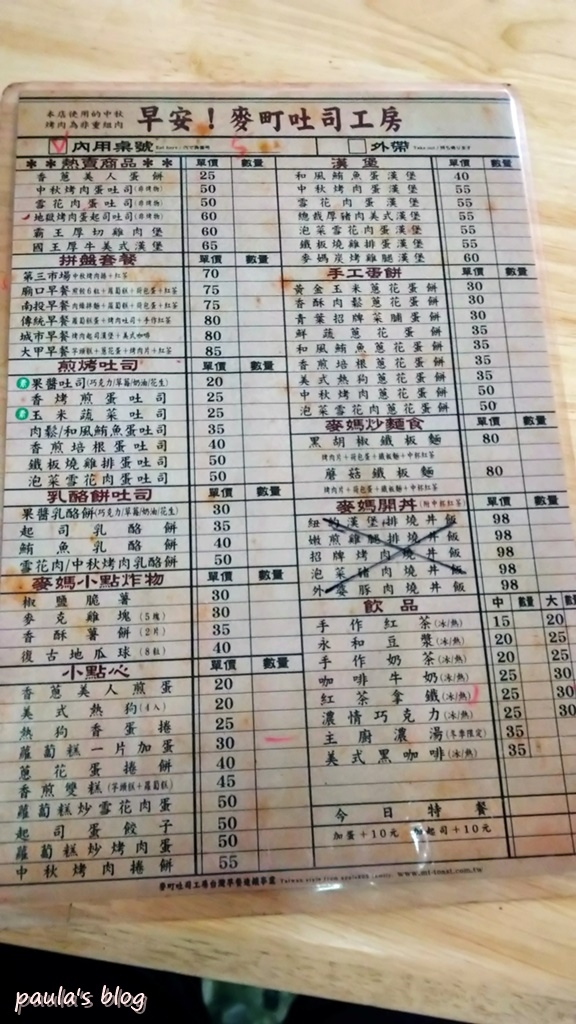 本店使用的中秋
烤肉為非重組肉
早安！麥町吐司工房
內用桌號 Eat here 5
外帶 Take out
＊＊熱賣商品＊＊ 單價 數量
香蔥美人蛋餅 25
中秋烤肉蛋吐司 50
雪花肉蛋吐司 50
地獄烤肉蛋起司吐司 60
霸王厚切雞肉堡 60
國王厚牛美式漢堡 65
拼盤套餐 單價 數量
第三市場 中秋烤肉捲+紅茶 70
廟口早餐 75
南投早餐 75
傳統早餐 80
城市早餐 烤肉起司漢堡+美式咖啡 80
大甲早餐 芋頭糕+蔥花蛋+烤肉片+紅茶 85
煎烤吐司 單價 數量
果醬吐司(巧克力/草莓/奶油/花生) 20
香烤煎蛋吐司 25
玉米蔬菜吐司 25
肉鬆/和風鮪魚蛋吐司 35
香煎培根蛋吐司 40
鐵板燒雞排蛋吐司 50
泡菜雪花肉蛋吐司 50
乳酪餅吐司 單價 數量
果醬乳酪餅(巧克力/草莓/奶油/花生) 30
起司乳酪餅 35
鮪魚乳酪餅 40
雪花肉/中秋烤肉乳酪餅 50
麥媽小點炸物 單價 數量
椒鹽脆薯 30
麥克雞塊(5塊) 30
香酥薯餅(2片) 35
復古地瓜球(8粒) 40
小點心 單價 數量
香蔥美人煎蛋 20
美式熱狗(4入) 20
熱狗香蛋捲 25
蘿蔔糕一片加蛋 30
蔥花蛋捲餅 40
香煎雙糕(芋頭糕+蘿蔔糕) 45
蘿蔔糕炒雪花肉蛋 50
起司蛋餃子 50
蘿蔔糕炒烤肉蛋 50
中秋烤肉捲餅 55
漢堡 單價 數量
和風鮪魚蛋漢堡 40
中秋烤肉蛋漢堡 55
雪花肉蛋漢堡 55
總裁厚豬肉美式漢堡 55
泡菜雪花肉蛋漢堡 55
鐵板燒雞排蛋漢堡 55
麥媽炭烤雞腿漢堡 60
手工蛋餅 單價 數量
黃金玉米蔥花蛋餅 30
香酥肉鬆蔥花蛋餅 30
青葉招牌菜脯蛋餅 30
鮮蔬蔥花蛋 35
和風鮪魚蔥花蛋餅 35
香煎培根蔥花蛋餅 35
美式熱狗蔥花蛋餅 35
中秋烤肉蔥花蛋餅 50
泡菜雪花肉蔥花蛋餅 50
麥媽炒麵食 單價 數量
黑胡椒鐵板麵 80
烤肉片+荷包蛋+鐵板麵+中杯紅茶
蘑菇鐵板麵 80
烤肉片+荷包蛋+鐵板麵+中杯紅茶
麥媽開丼(附中杯紅茶) 單價 數量
紐約漢堡排燒丼飯 98
嫩煎雞腿排燒丼飯 98
招牌烤肉燒丼飯 98
泡菜豬肉燒丼飯 98
外婆豚肉燒丼飯 98
飲品 中 數量 大 數量
手作紅茶(冰/熱) 15 20
永和豆漿(冰/熱) 20 25
手作奶茶(冰/熱) 20 25
咖啡牛奶(冰/熱) 25 30
紅茶拿鐵(冰/熱) 25 30
濃情巧克力(冰/熱) 25 30
主廚濃湯(冬季限定) 35
美式黑咖啡(冰/熱) 35
今日特餐
加蛋+10元 加起司+10元
麥町吐司工房台灣早餐連鎖事業
paula's blog